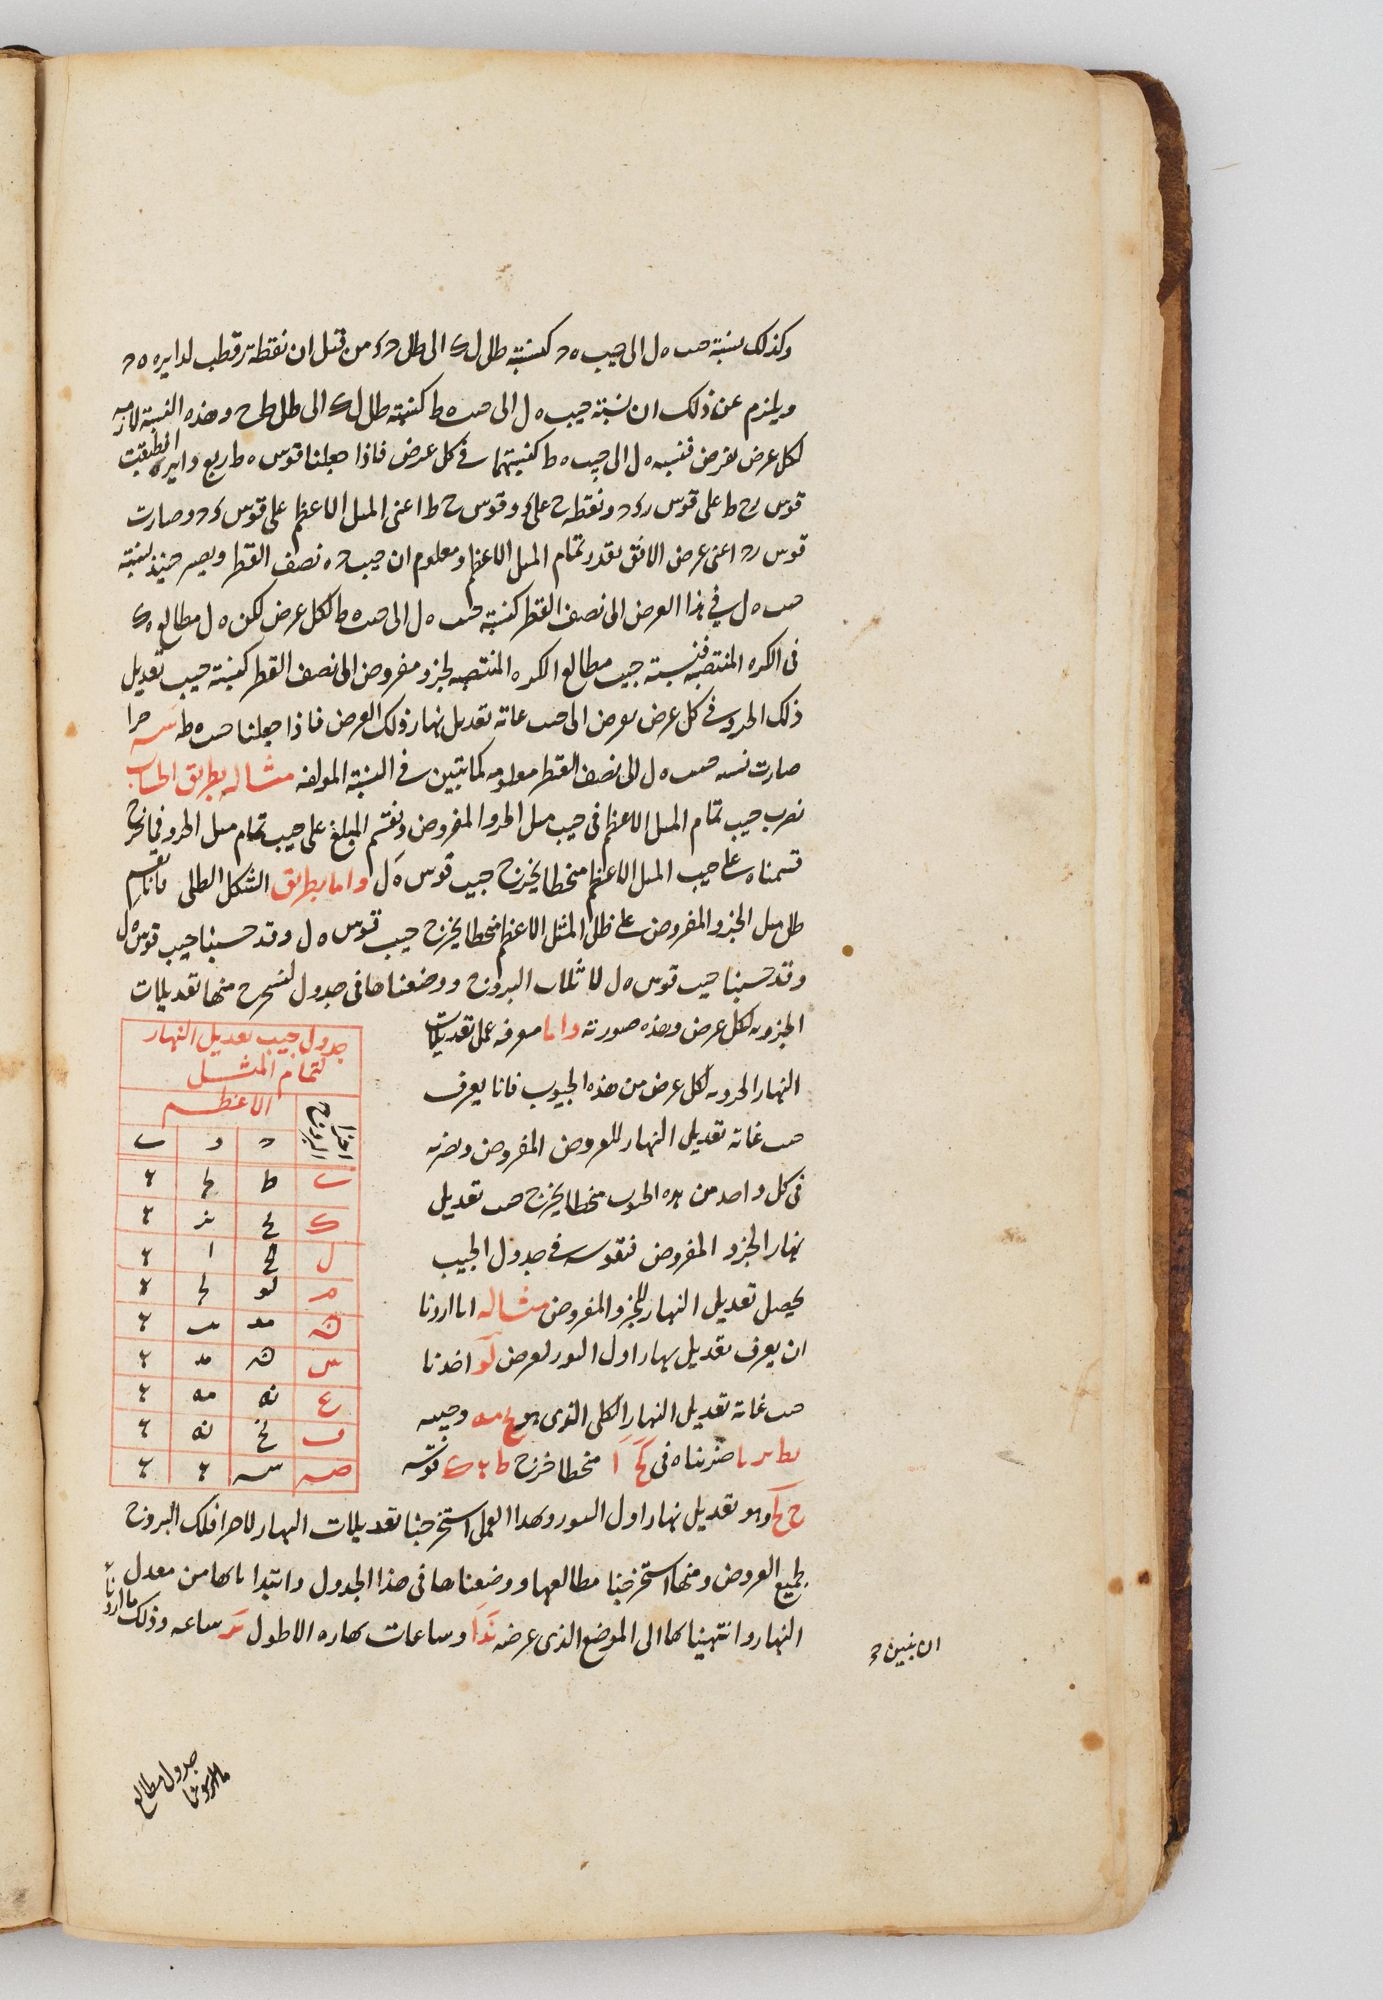 وكذلك نسبة جيب ه ل الى جيب ه ح كنسبة ظل ل ك الى ظل ح ك من قبل ان نقطة ر قطب لدايره ه ح
ويلزم عن ذلك ان نسبة جيب ه ل الى جيب ه ط كنسبة ظل ل ك الى ظل ط ح وهذه النسبة لازمه
لكل عرض نفرض فنسبه ه ل الى جيب ه ط كنسبتهما فى كل عرض فاذا جعلنا قوس ه ط ربع دايره انطبقت
قوس ر ح ط على قوس ر ك ح ونقطه ح على ك وقوس ح ط اعنى الميل الاعظم على قوس ك ح وصارت
قوس ر ح اعنى عرض الافق بقدر تمام الميل الاعظم ومعلوم ان جيب ح ه نصف القطر ويصير حينئذ نسبة
جيب ه ل فى هذا العرض الى نصف القطر كنسبة جيب ه ل الى جيب ه ط لكل عرض لكن ه ل مطالع ه ك
فى الكره المنتصبه فنسبة جيب مطالع الكره المنتصبه لجزو مفروض الى نصف القطر كنسبة جيب تعديل
ذلك الجزو فى كل عرض يعرض الى جيب غاية تعديل نهار ذلك العرض فاذا جعلنا جيب ه ط سه جزا
صارت نسبه جيب ه ل الى نصف القطر معلومه كما تبين فى النسبة المولفه مثاله بطريق الحساب
نضرب جيب تمام الميل الاعظم فى جيب ميل الجزو المفروض ونقسم المبلغ على جيب تمام ميل الجزو فما يخرج
قسمناه على جيب الميل الاعظم منحطا يخرج جيب قوس ه ل واما بطريق الشكل الظلى فانا نقسم
ظل ميل الجزو المفروض على ظل الميل الاعظم منحطا يخرج جيب قوس ه ل وقد حسبنا جيب قوس ه ل
وقد حسبنا جيب قوس ه ل لاثلاث البروج ووضعناها فى جدول لنستخرج منها تعديلات
الجزويه لكل عرض وهذه صورته واما معرفه عمل تعديلات
النهار الجزويه لكل عرض من هذه الجيوب فانا نعرف
جيب غاية تعديل النهار للعرض المفروض ونضربه
فى كل واحد من هذه الجيوب منحطا يخرج جيب تعديل
نهار الجزو المفروض فنقوسه فى جدول الجيب
يحصل تعديل النهار للجزو المفروض مثاله انا اردنا
ان نعرف تعديل نهار اول الثور لعرض لو اخذنا
جيب غاية تعديل النهار الكلى الذى هو وجيبه
ضربناه فى منحطا فخرج قوسه
وهو تعديل نهار اول الثور وبهذا العمل استخرجنا تعديلات النهار لاجزا فلك البروج
لجميع العروض ومنها استخرجنا مطالعها ووضعناها فى هذا الجدول وابتدا بها من معدل
النهار وانتهينا بها الى الموضع الذى عرضه ند ا وساعات نهاره الاطول ساعه وذلك ما اردنا
ان نبين
جدول جيب تعديل النهار
لتمام الميل
الاعظم
اجزا البروج
ى ط
ك
ل ا
م لو
ن مد
س ن مد
ع نه مه
ف نح نه
ص س
جدول مطالع